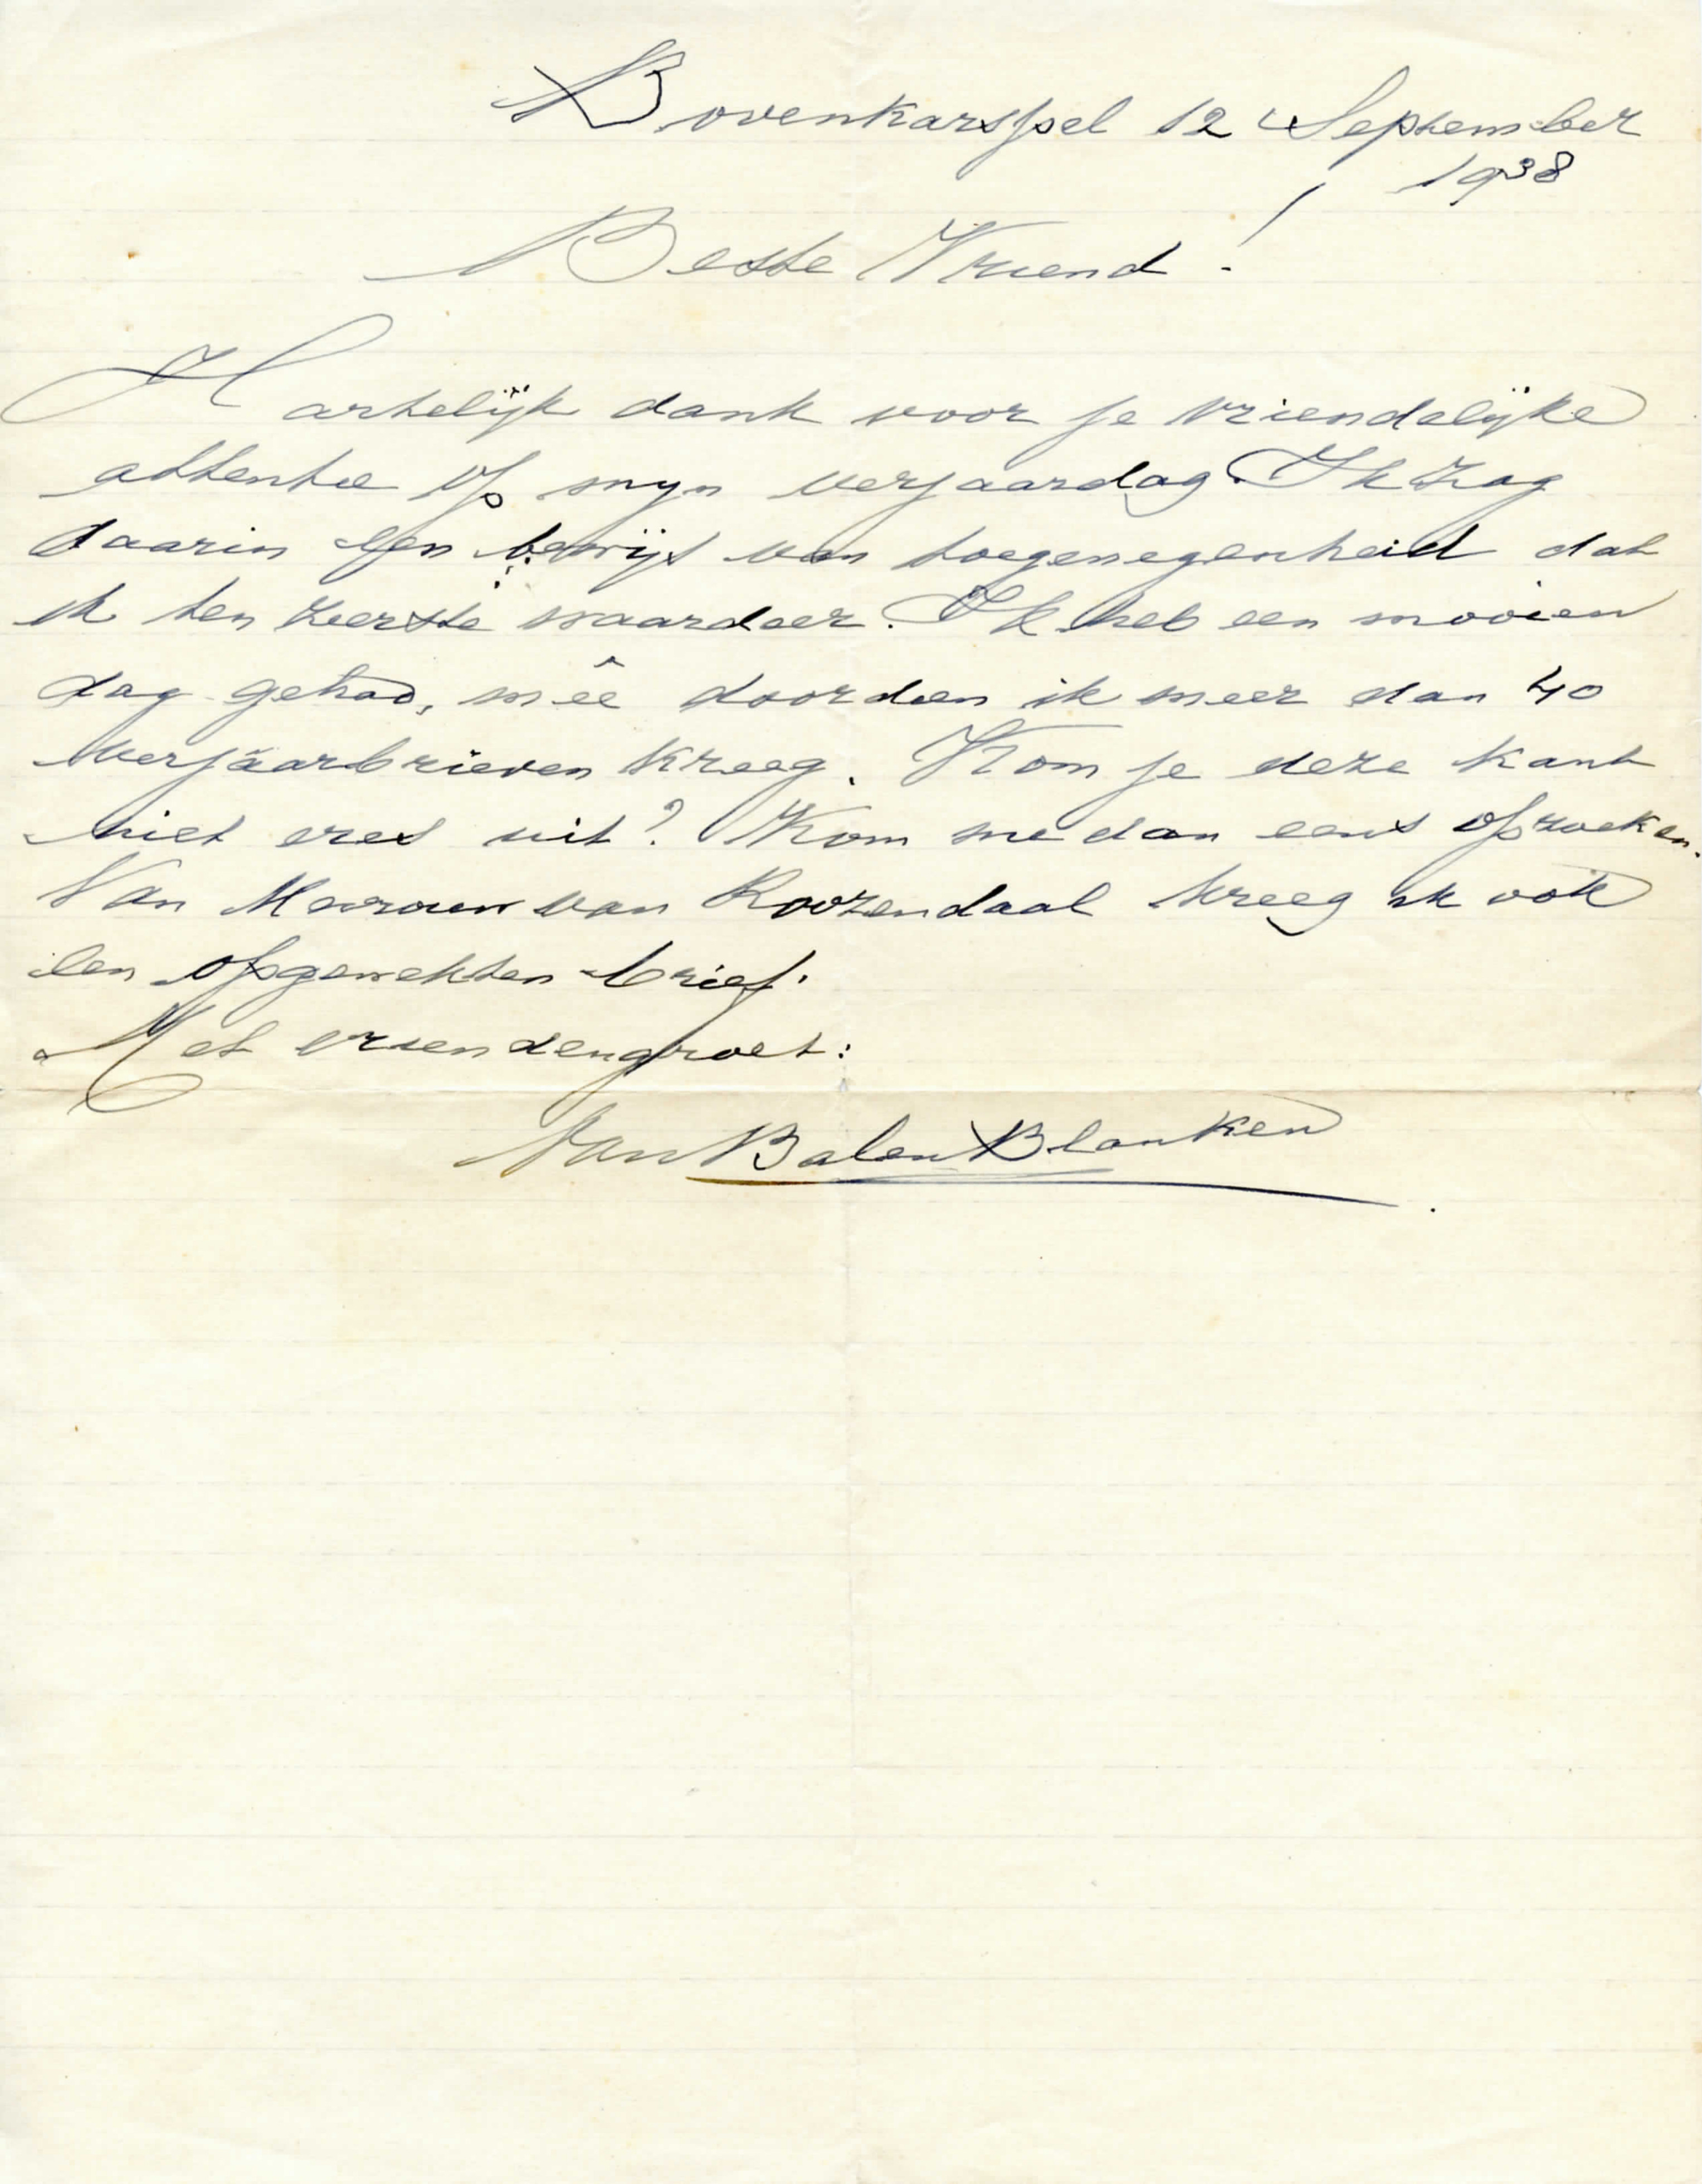 Bovenkarspel 12 September
1938
Beste Vriend!
Hartelijk dank voor je vriendelijke
attentie op mijn verjaardag. Ik zag
daarin een bewijs van toegenegenheid dat
ik ten zeerste waardeer. Ik heb een mooien
dag gehad, mêe doordien ik meer dan 40
verjaarbrieven kreeg. Kom je deze kant
niet eres uit? Kom me dan eens opzoeken.
Van Mevrouw van Roozendaal kreeg ik ook
een opgewekten brief.
Met vriendengroet:
Van Balen Blanken